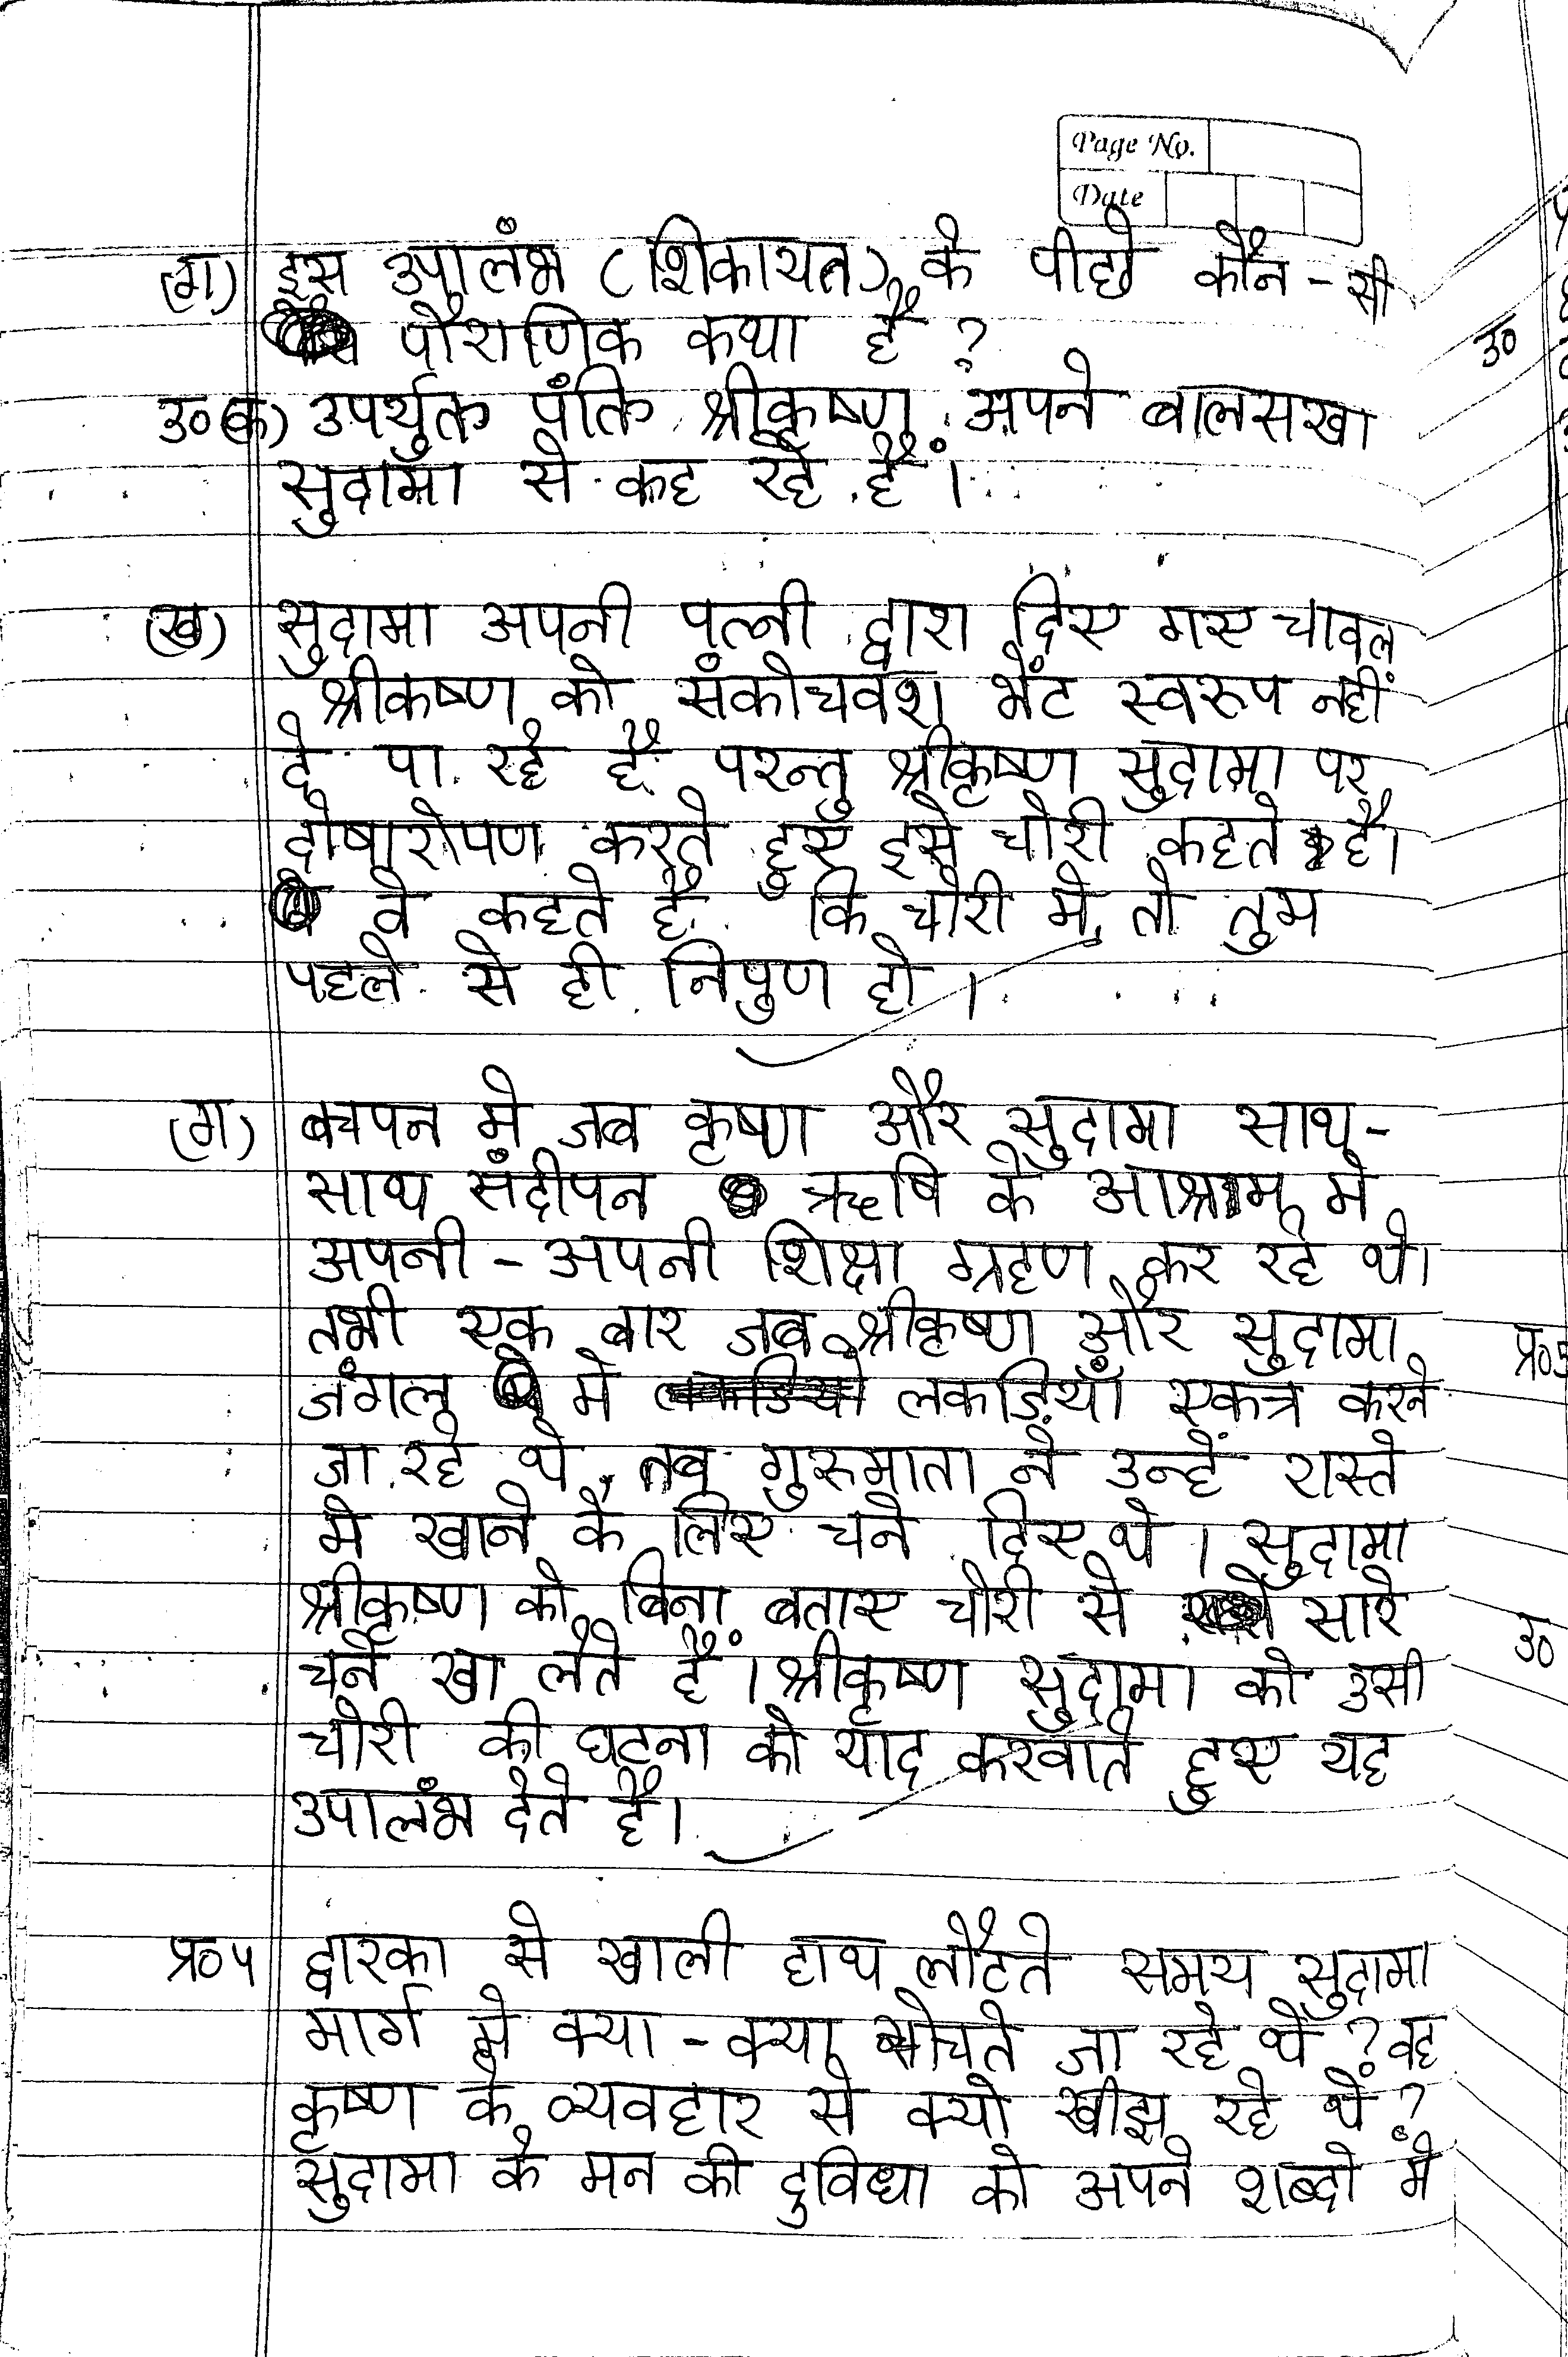 Page No.
Date
(ग) इस उपालंभ (शिकायत) के पीछे कौन-सी
पौराणिक कथा है ?
उ०(क) उपर्युक्त पंक्ति श्रीकृष्ण अपने बालसखा
सुदामा से कह रहे हैं।
(ख) सुदामा अपनी पत्नी द्वारा दिए गए चावल
श्रीकष्ण को संकोचवश भेंट स्वरूप नहीं
दे पा रहे हैं परन्तु श्रीकृष्ण सुदामा पर
दोषारोपण करते हुए इसे चोरी कहते है।
वे कहते है कि चोरी मे तो तुम
पहले से ही निपुण हो।
(ग) बचपन मे जब कृष्ण और सुदामा साथ-
साथ संदीपन ऋषि के आश्रम मे
अपनी-अपनी शिक्षा ग्रहण कर रहे थे।
तभी एक बार जब श्रीकृष्ण और सुदामा
जंगल मे लकड़ियाँ एकत्र करने
जा रहे थे, तब गुरुमाता ने उन्हें रास्ते
मे खाने के लिए चने दिए थे। सुदामा
श्रीकृष्ण को बिना बताए चोरी से सारे
चने खा लेते हैं। श्रीकृष्ण सुदामा को उसी
चोरी की घटना को याद करवाते हुए यह
उपालंभ देते है।
प्र०५ द्वारका से खाली हाथ लौटते समय सुदामा
मार्ग मे क्या-क्या सोचते जा रहे थे ? वह
कृष्ण के व्यवहार से क्यों खीझ रहे थे ?
सुदामा के मन की दुविधा को अपने शब्दो मे
उ०
प्र०५
उ०